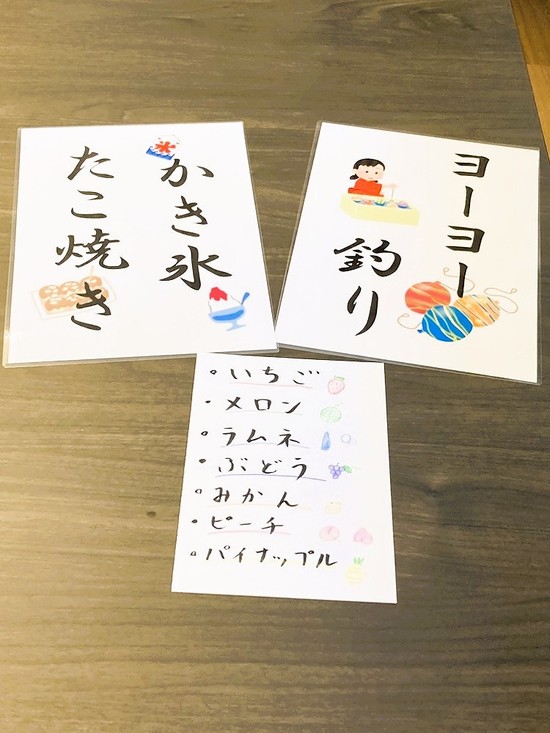 かき氷
たこ焼き
ヨーヨー
釣り
いちご
メロン
ラムネ
ぶどう
みかん
ピーチ
パイナップル